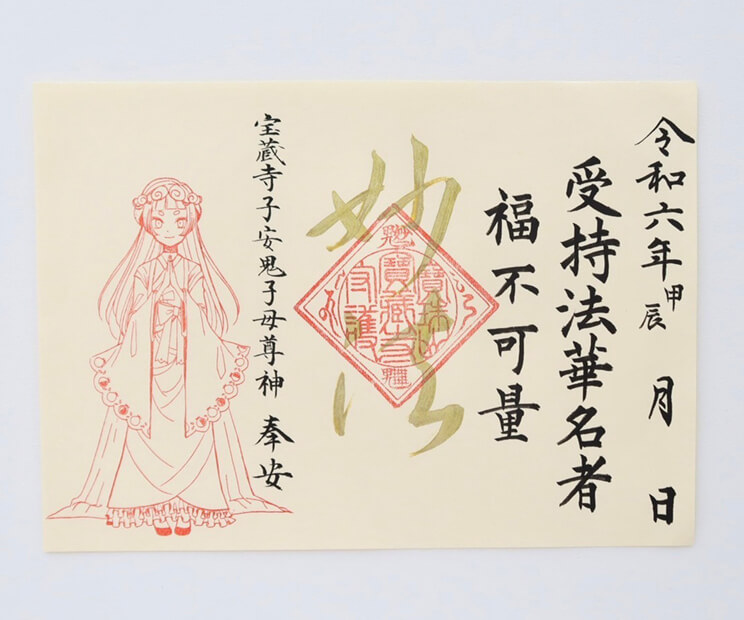 令和六年甲辰 月 日
受持法華名者
福不可量
妙法
宝蔵寺子安鬼子母尊神 奉安